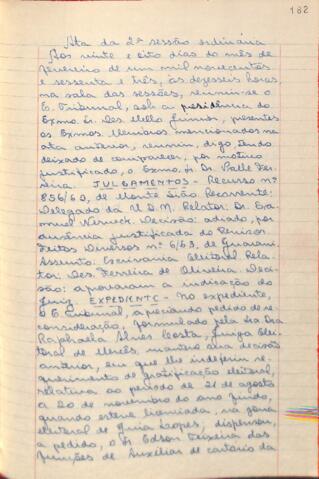 182
Ata da 2ª sessão ordinária
Aos vinte e oito dias do mês de
fevereiro de um mil novecentos
e sessenta e três, às dezesseis horas
na sala das sessões, reuniu-se o
E. Tribunal, sob a presidência do
Exmo. Sr. Des. Mello Júnior, presentes
os Exmos. Membros mencionados na
ata anterior, reuniu, digo, tendo
deixado de comparecer, por motivo
justificado, o Exmo. Sr. Dr. Valle Fer-
reira. JULGAMENTOS - Recurso nº
856/62, de Monte Sião. Recorrente:
Delegado da U.D.N. Relator: Dr.
Decisão: adiado, por
ausência justificada do Revisor.
Feitos Diversos nº 6/63, de Guarani.
Assunto: Escrivania Eleitoral. Rela-
tor: Des. Ferreira de Oliveira. Deci-
são: aprovaram a indicação do
Juiz. EXPEDIENTE - No expediente,
o E. Tribunal, apreciando pedido de re-
consideração, formulado pela Sra. Dra.
Raphaela Alves Costa, Juíza Elei-
toral de Mercês, manteve sua decisão
anterior, em que lhe indeferiu re-
querimento de gratificação eleitoral,
relativa ao período de 21 de agosto
a 20 de novembro do ano findo,
quando esteve licenciada, na zona
eleitoral de Guia Lopes; dispensou,
a pedido, o Sr. Edson Teixeira das
funções de Auxiliar de cartório da